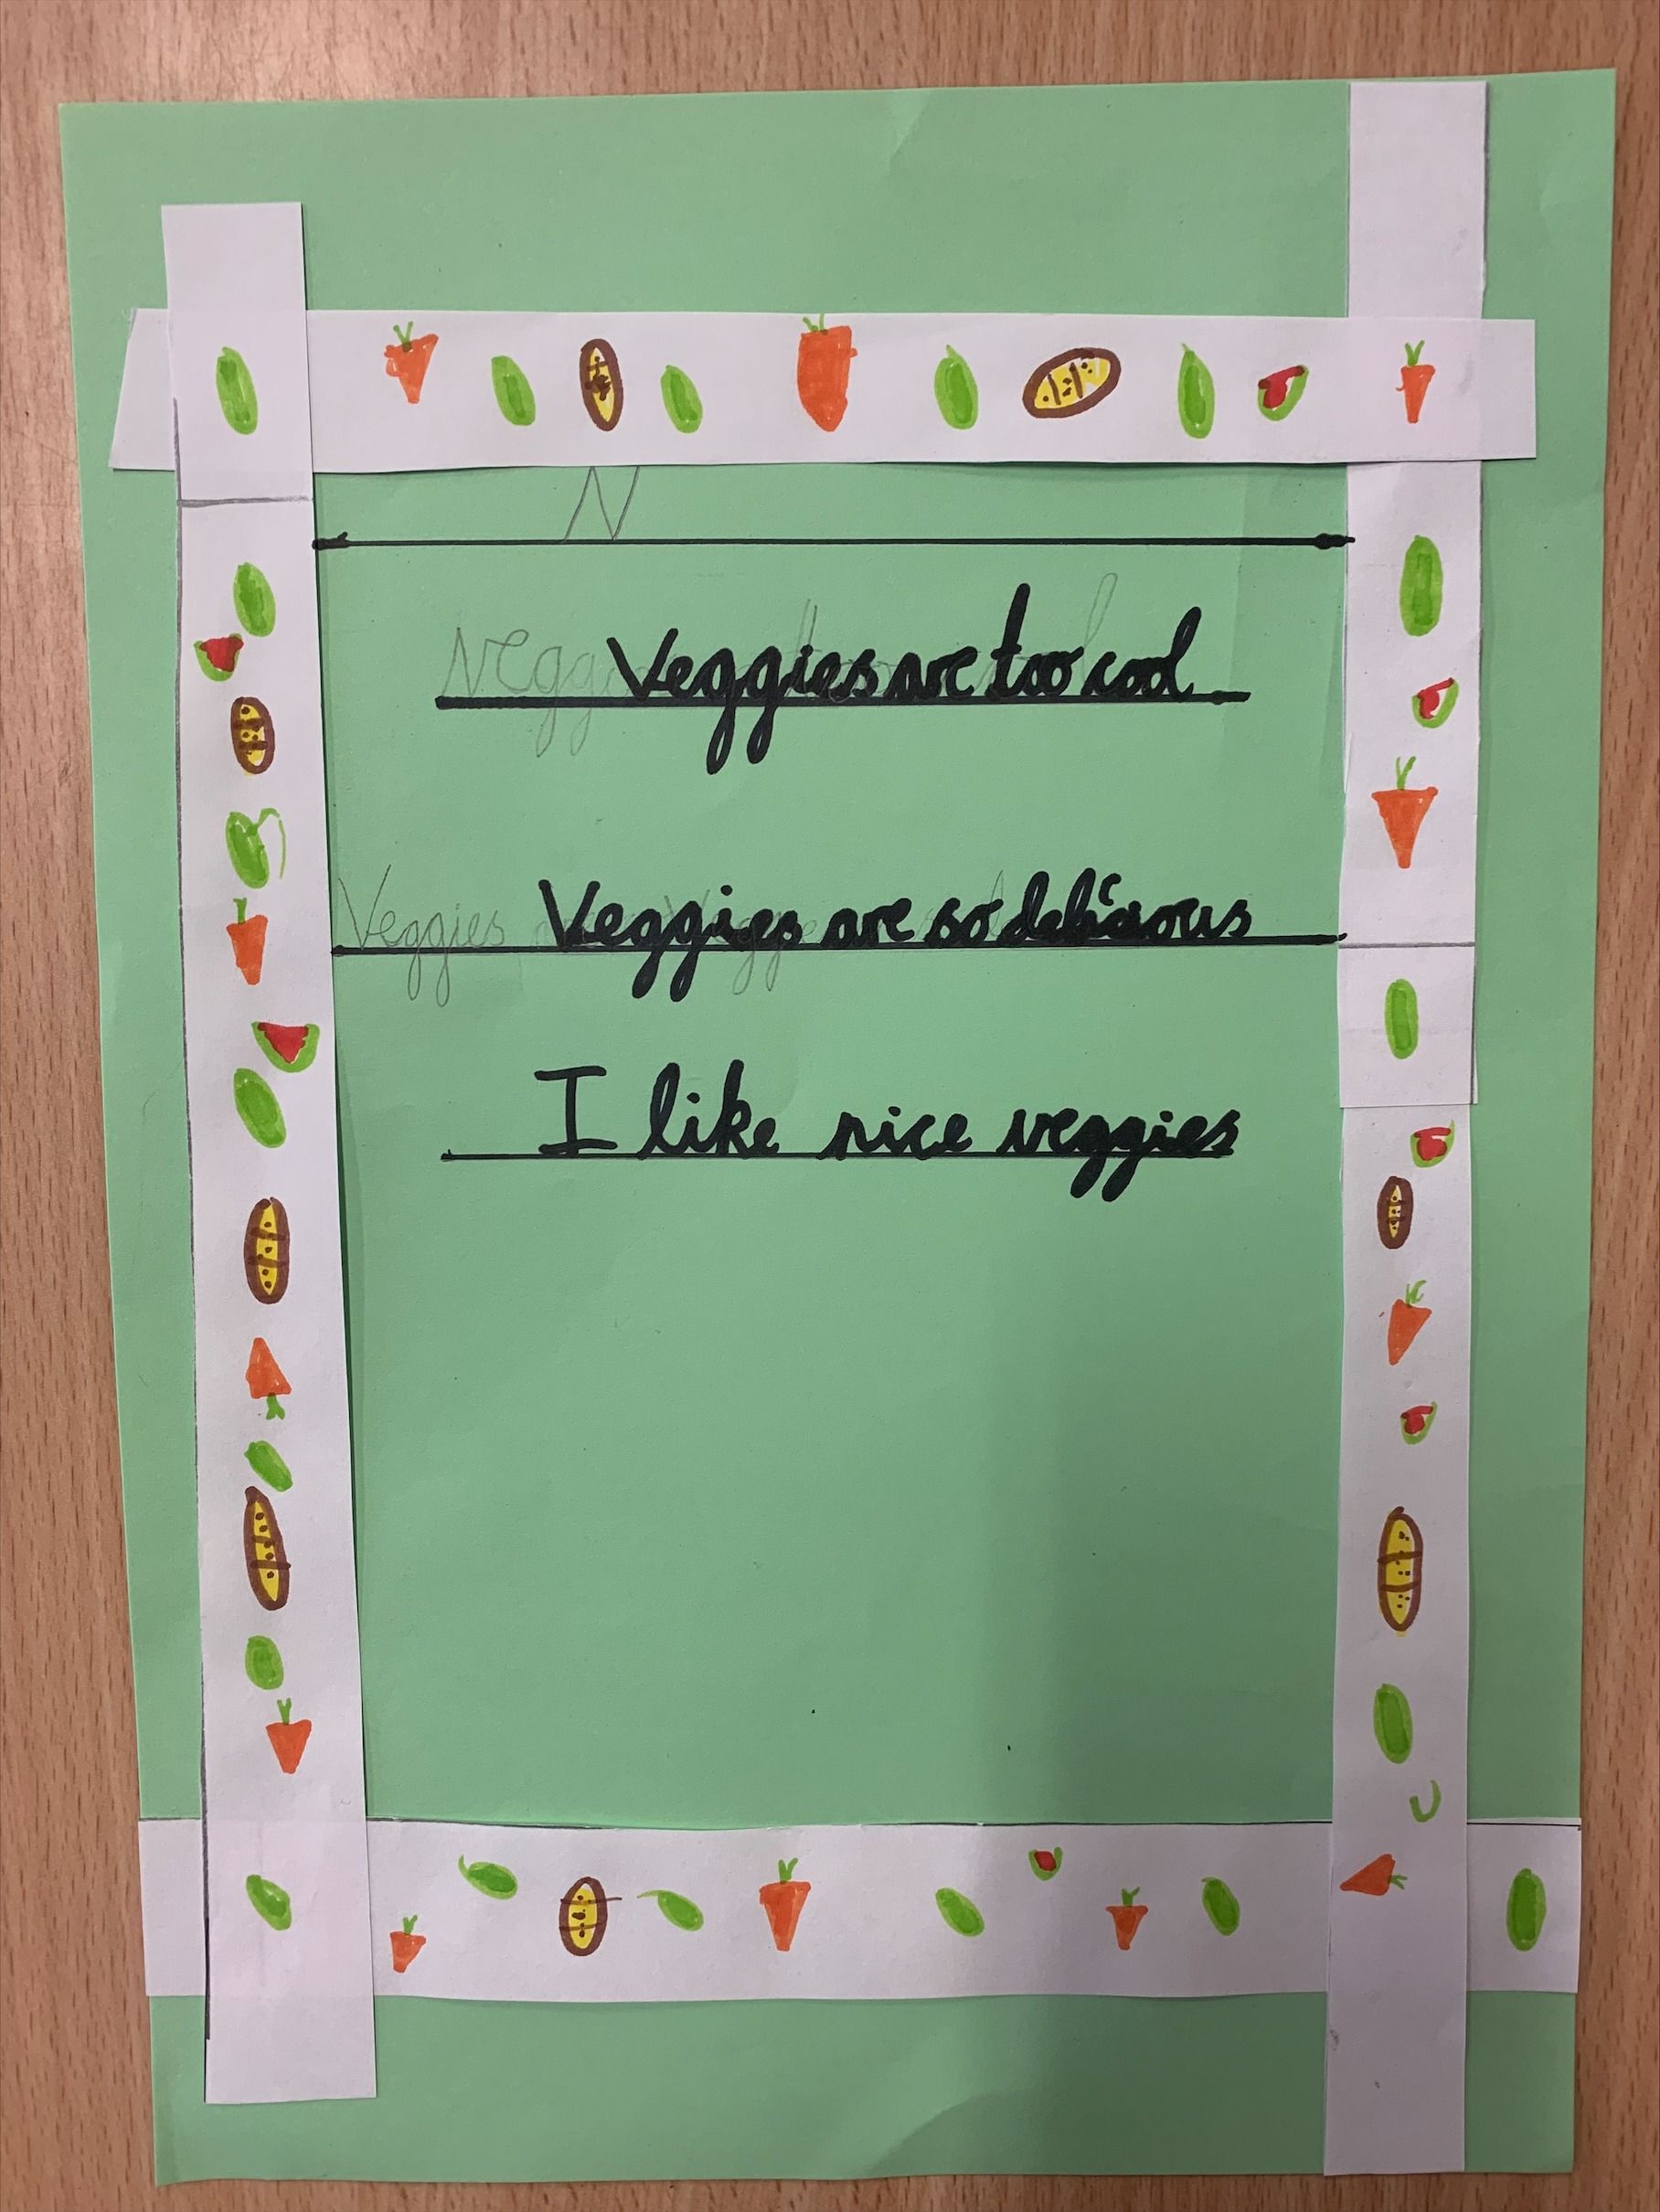 N
Veggies are too cool
Veggies are so delicious
I like nice veggies